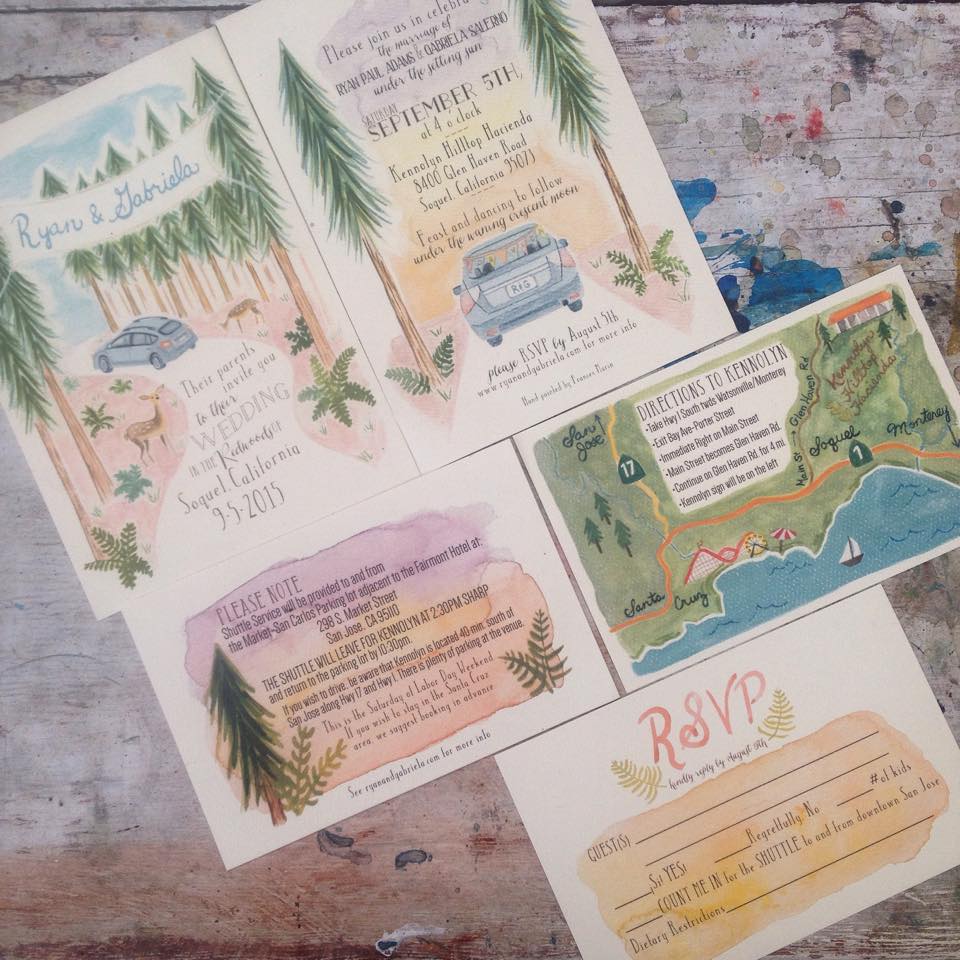 Ryan & Gabriela
Their parents
to their invite you
WEDDING
IN THE Redwoods OF
Soquel, California
9-5-2015
Please join us in celebra
the marriage of
RYAN PAUL ADAMS & GABRIELA SALERNO
under the setting sun
SATURDAY
SEPTEMBER 5TH,
at 4 o'clock
Kennolyn Hilltop Hacienda
8400 Glen Haven Road
Soquel, California 95073
Feast and dancing to follow
under the waning crescent moon
R+G
please RSVP by August 5th
www.ryanandgabriela.com for more info
Hand painted by Frances Marin
DIRECTIONS TO KENNOLYN
-Take Hwy 1 South twds Watsonville/Monterey
-Exit Bay Ave-Porter Street
-Immediate Right on Main Street
-Main Street becomes Glen Haven Rd.
-Continue on Glen Haven Rd. for 4 mi.
-Kennolyn sign will be on the left
San
Jose
17
Main St → Glen Haven Rd
Kennolyn
Hilltop
Hacienda
Soquel
1
Monterey
Santa Cruz
PLEASE NOTE
Shuttle Service will be provided to and from
the Market-San Carlos Parking lot adjacent to the Fairmont Hotel at:
298 S. Market Street
San Jose, CA 95110
THE SHUTTLE WILL LEAVE FOR KENNOLYN AT 2:30PM SHARP
and return to the parking lot by 10:30pm.
If you wish to drive, be aware that Kennolyn is located 40 min. south of
San Jose along Hwy 17 and Hwy 1. There is plenty of parking at the venue.
This is the Saturday of Labor Day Weekend.
If you wish to stay in the Santa Cruz
area, we suggest booking in advance.
See ryanandgabriela.com for more info
RSVP
kindly reply by August 5th
GUEST(S)
Si! YES! Regretfully, No # of kids
COUNT ME IN for the SHUTTLE to and from downtown San Jose
Dietary Restrictions